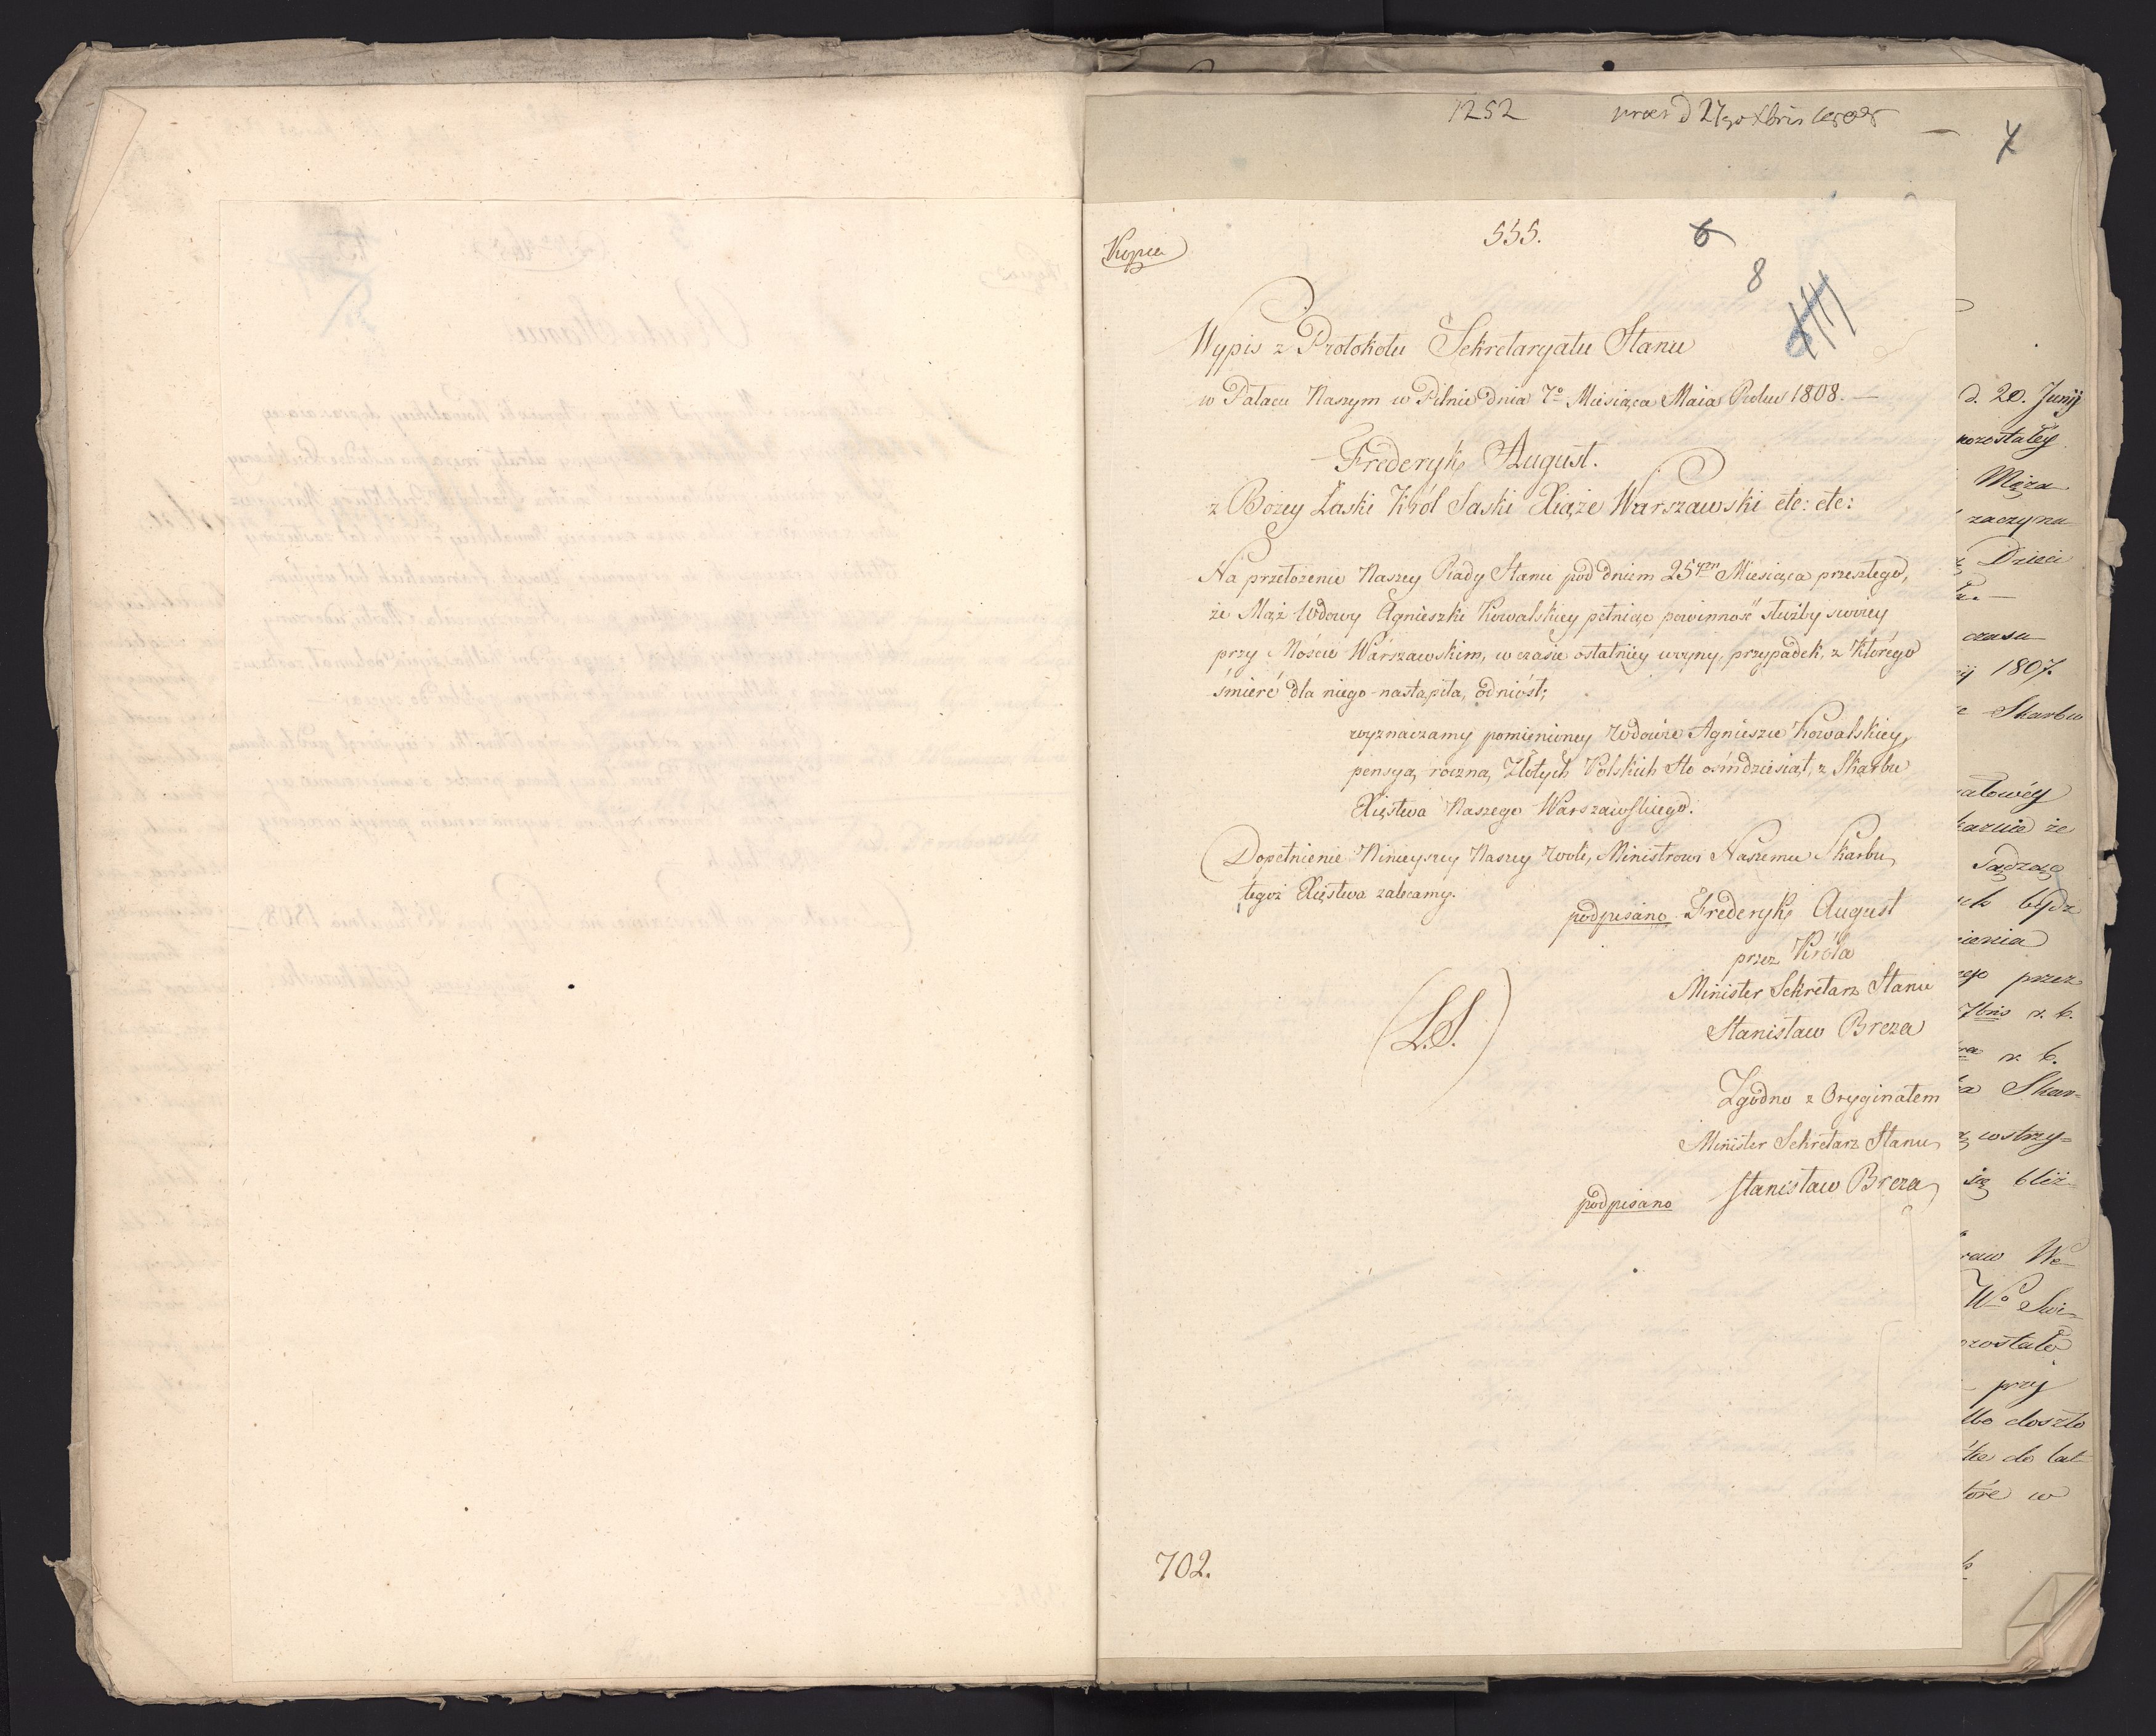 1252
4
555.
6
Kopia
8
Wypis z Protokołu Sekretaryatu Stanu
w Pałacu Naszym w Pilnie dnia 7º Miesiąca Maia Roku 1808.—
Frederyk August.
z Bożey Łaski Król Saski Xiąże Warszawski etc: etc:
Na przełożenie Naszey Rady Stanu pod dniem 25tym Miesiąca przeszłego,
że Mąż Wdowy Agnieszki Kowalskiey pełniąc powinność służby swoiey
przy Moście Warszawskim, w czasie ostatniey woyny, przypadek, z którego
śmierć dla niego nastąpiła, odniósł;
wyznaczamy pomienioney Wdowie Agniesze Kowalskiey,
pensyą roczną Złotych Polskich Sto ośmdziesiąt, z Skarbu
Xięstwa Naszego Warszawskiego.
Dopełnienie Ninieyszey Naszey Woli, Ministrowi Naszemu Skarbu
tegoż Xięstwa zalecamy.
podpisano Frederyk August
przez Króla
Minister Sekretarz Stanu
Stanisław Breza
(L.S.)
Zgodno z Oryginałem
Minister Sekretarz Stanu
podpisano Stanisław Breza
702.
d. 20. Junij
pozostałey
Męża
zaczyna
Dzieci
czasu
1807.
Skarbu
że
Sądząc
przez
7bris r. b.
r. b.
Skar=
wstrzy=
się bliż
We
Wº Świ
przy
doszło
do lat
w